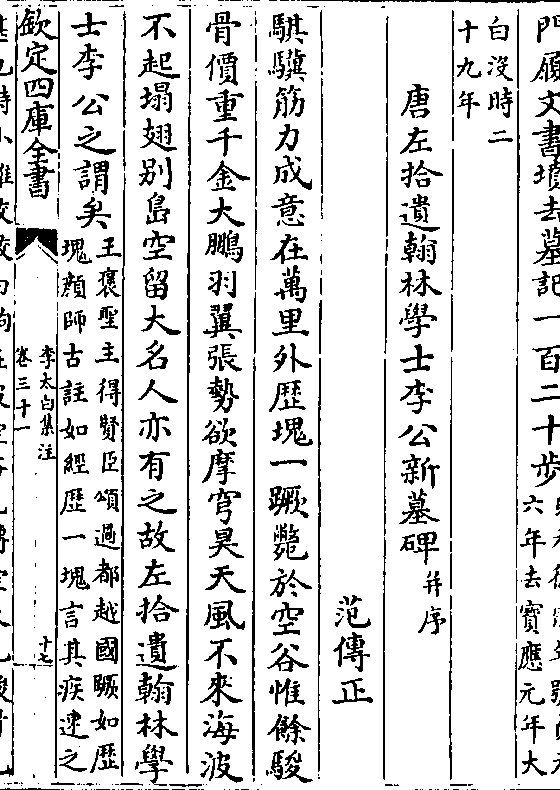 門履文書墳去墓記一百二十步
六年去寶應元年大
白沒時二
十九年
唐左拾遺翰林學士李公新墓碑
并序
范傳正
騏驥筋力成意在萬里外歴塊一蹶斃於空谷惟餘駿
骨價重千金大鵬羽翼張勢欲摩穹昊天風不來海波
不起塌翅别島空留大名人亦有之故左拾遺翰林學
士李公之謂矣
王褒聖主得賢臣頌過都越國蹶如歴
塊顔師古註如經歴一塊言其疾速之
欽定四庫全書
李太白集注
卷三十一
十七